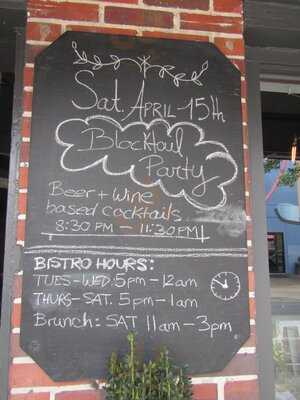 Sat. APRIL 15th
Blocktail
Party
Beer + Wine
based cocktails
8:30 PM - 11:30 PM
BISTRO HOURS:
TUES-WED. 5pm-12am
THURS-SAT. 5pm-1am
Brunch: SAT 11am-3pm